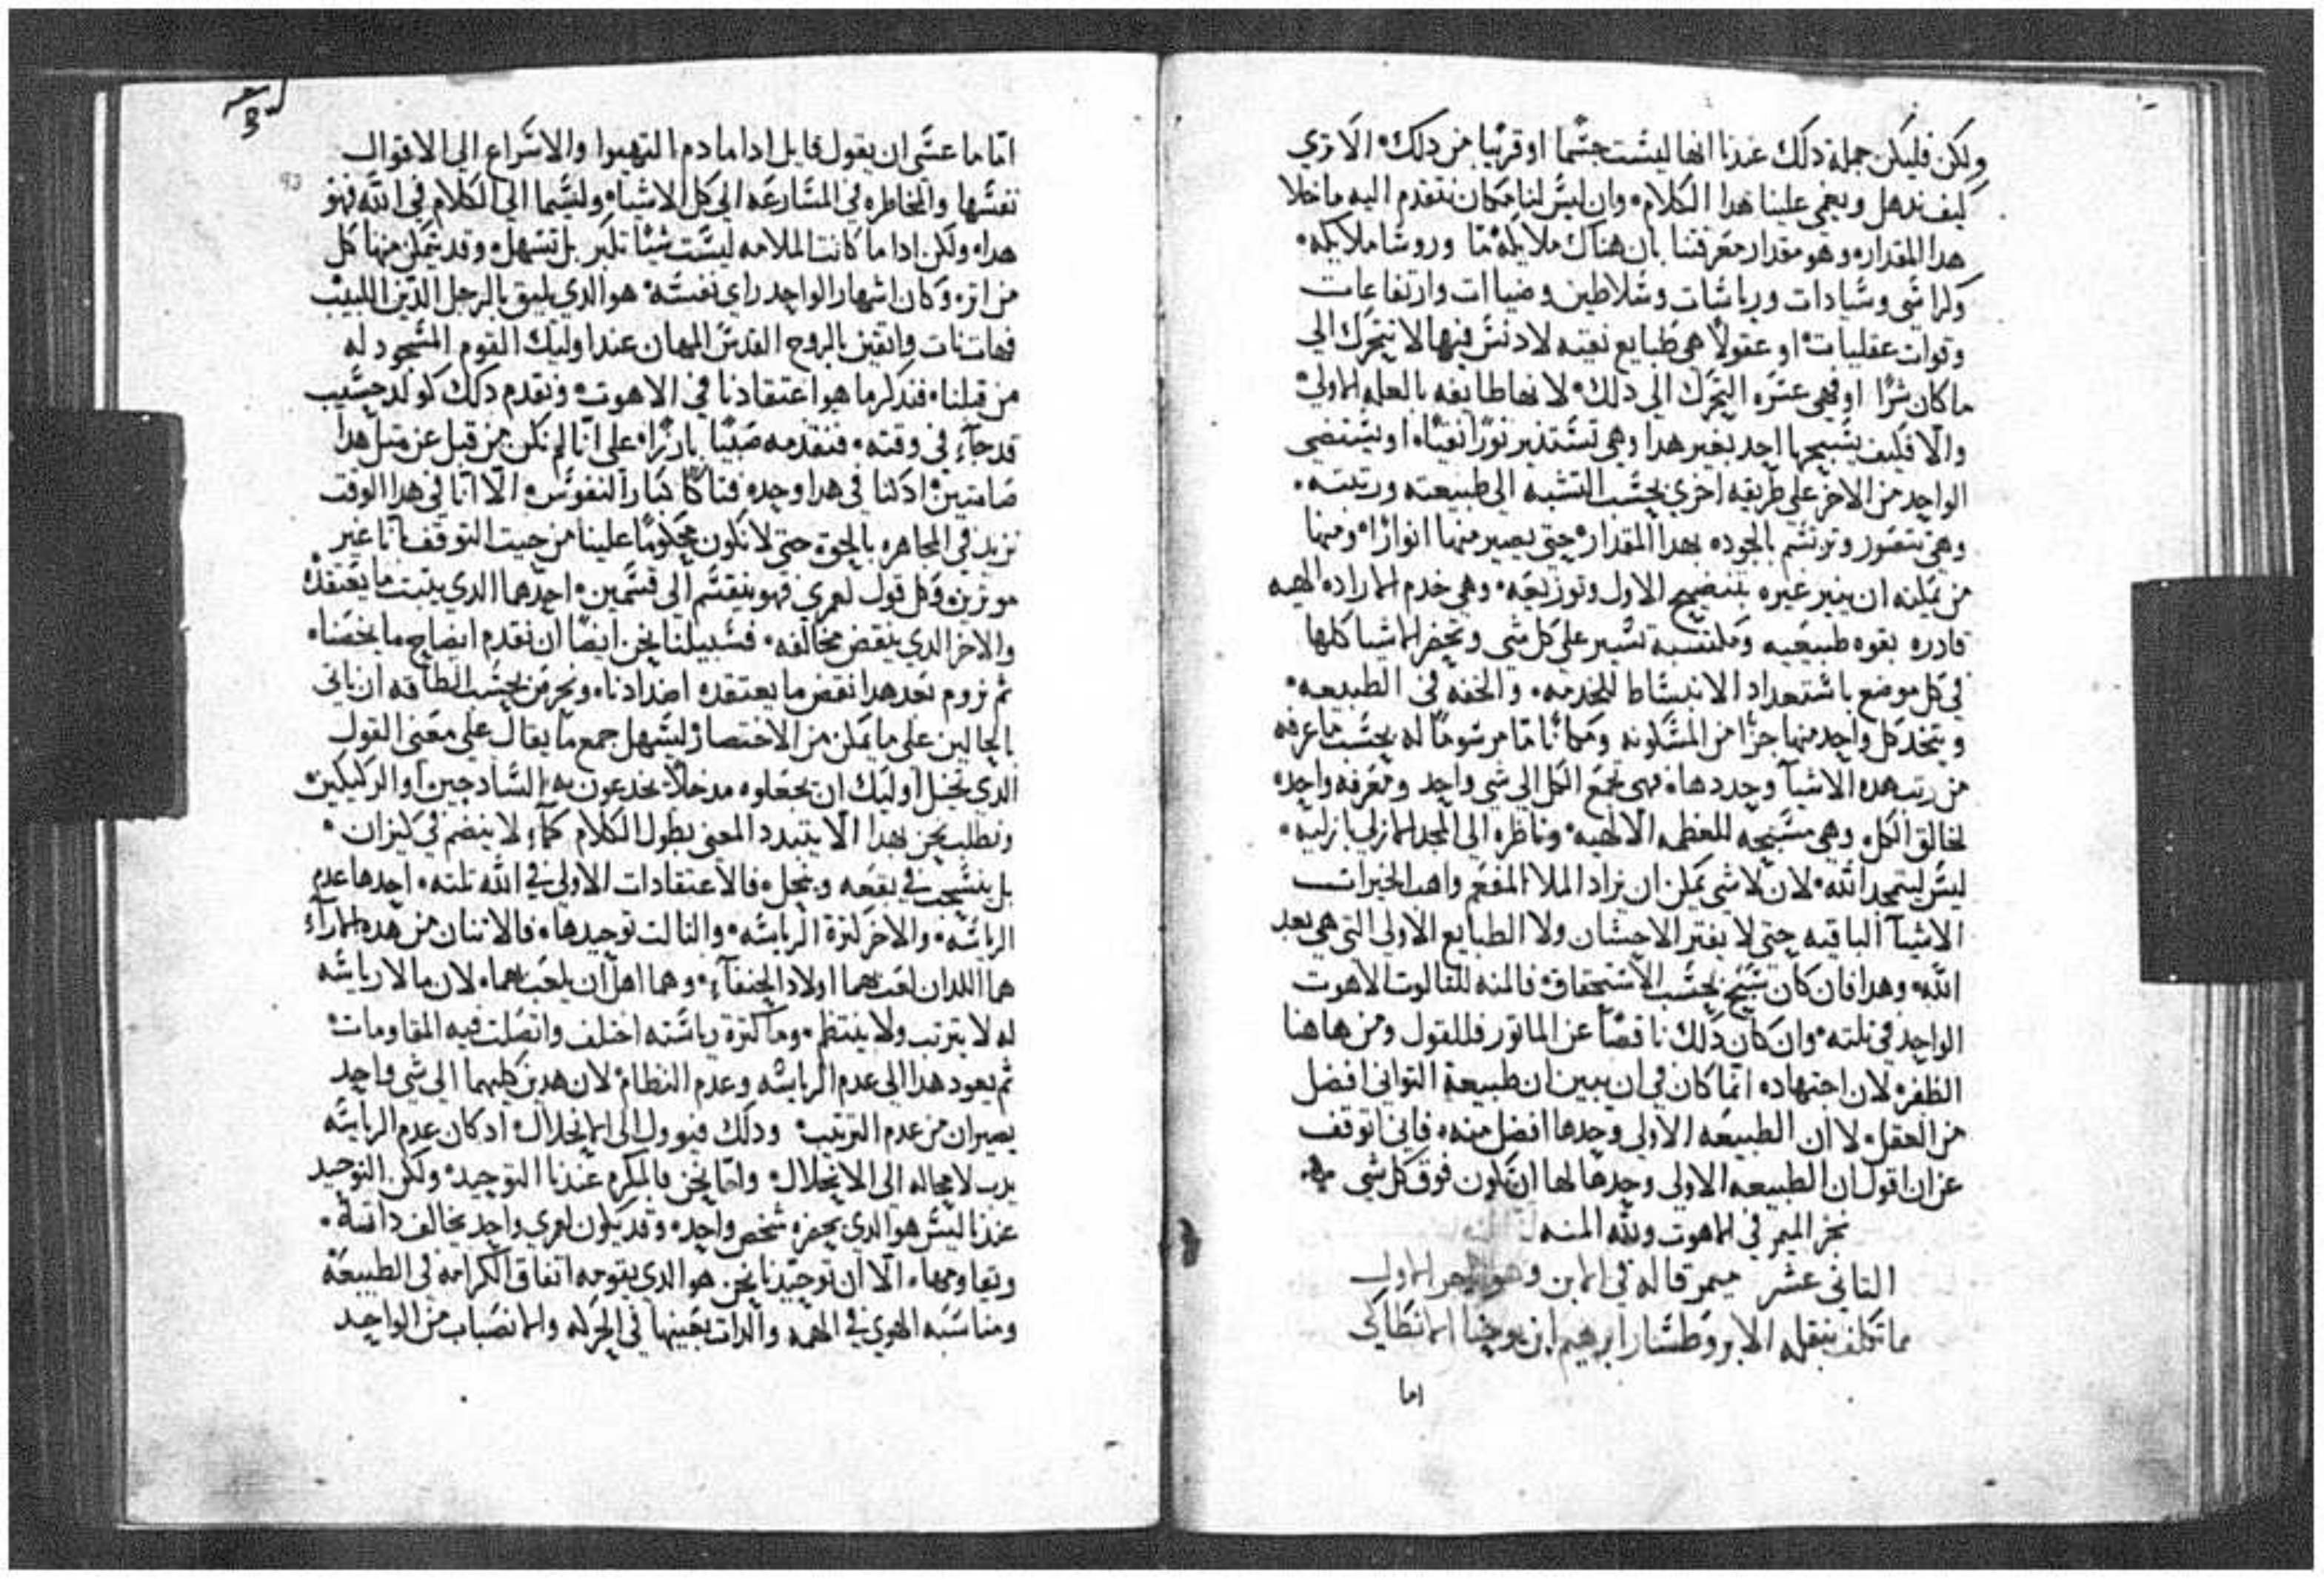 ولكن فليكن جملة دلك عندنا انها ليست جسما او قريبا من دلك الا تري
كيف ندهل ويعمي علينا هدا الكلام وان ليس لنا مكان نتقدم اليه ما خلا
هدا المقدار وهو مقدار معرفتنا بان هناك ملايكه ما وروسا ملايكه
وكراسي وسيادات ورياسات وسلاطين وضياات وارتفاعات
وقوات عقليات او عقولا هي طبايع نقيه لا دنس فيها لا يتحرك الي
ما كان شرا او فهي عسره التحرك الي دلك لانها طايفه بالعله الاولي
والا فكيف يسبحها احد بغير هدا وهي تستدير نورا نقيا او يستضي
الواحد من الاخر علي طريقه اخري بحسب التشبه الي طبيعته ورتبته
وهي تتصور وترتسم بالجوده بهدا المقدار حتي يصير منها انوارا ومنها
من يمكنه ان ينير غيره بتنضيح الاول وتوزيعه وهي خدم الاراده الالهيه
قادره بقوه طبيعيه ومكتسبه تسير علي كل شي وتحضر الاشيا كلها
في كل موضع باستعداد الانبساط للخدمه والخفه في الطبيعه
ويتخد كل واحد منها جزا من المسكونه ومكانا ما مرسوما له بحسب ما عرفه
من رتب هده الاشيآ وحددها فهي تجمع الكل الي شي واحد ومعرفه واحده
لخالق الكل وهي مسبحه للعظمه الالهيه وناظره الي المجد الازلي بازليه
ليس ليتمجد الله لان لا شي يمكن ان يزاد الملا المفعم واهب الخيرات
الاشيآ الباقيه حتي لا يفتر الاحسان ولا الطبايع الاولي التي هي بعد
الله وهدا فان كان سبح بحسب الاستحقاق فالمنه للتالوت لاهوت
الواحد في تلته وان كان دلك ناقصا عن الماتور فللقول ومن هاهنا
الظفر لان اجتهاده انما كان في ان يبين ان طبيعة التواني افضل
من العقل لا ان الطبيعه الاولي وحدها افضل منه فاني اتوقف
عن ان اقول ان الطبيعه الاولي وحدها لها ان تكون فوق كل شي
نجز الميمر في اللاهوت ولله المنه
التاني عشر ميمر قاله في الابن وهو الاول
مما تكلف بنقله الابروطسار ابرهيم ابن يوحنا الانطاكي
اما
اما ما عسي ان يقول قايل ادا ما دم التهيوا والاسراع الي الاقوال
نفسها والمخاطره في المسارعه الي كل الاشيا ولسيما الي الكلام في الله فهو
هدا ولكن ادا ما كانت الملامه ليست شيا تكبر بل تسهل وقد يتمكن منها كل
من اتره وكان اشهار الواحد راي نفسه هو الدي يليق بالرجل الدين اللبيب
فهات نات واتقين بالروح القدس المهان عند اوليك القوم المسجود له
من قبلنا فندكر ما هو اعتقادنا في الاهوت ونقدم دلك كولد حسيب
قد جآء في وقته فنقدمه صبيا بارزا علي انا لم نكن من قبل عن متل هدا
صامتين اد كنا في هدا وحده فتاكا كبار النفوس الا انا في هدا الوقت
نزيد في المجاهره بالحق حتي لا نكون محكوما علينا من حيت التوقف بانا غير
موترين وكل قول لعمري فهو ينقسم الي قسمين احدهما الدي يتبت ما يعتقد
والاخر الدي ينقض مخالفه فسبيلنا نحن ايضا ان نقدم ايضاح ما يخصنا
تم نروم بعد هدا نقض ما يعتقده اضدادنا ونحرص بحسب الطاقه ان ناتي
بالحالين علي ما يمكن من الاختصار ليسهل جمع ما يقال علي معني القول
الدي تخيل اوليك ان يجعلوه مدخلا يخدعون به السادجين او الركيكين
ونطلب نحن بهدا الا يتبدد المعني بطول الكلام كمآء لا ينضم في كيزان
بل ينسحب في بقعه وينحل فالاعتقادات الاولي في الله تلته احدها عدم
الرياسه والاخر كترة الرياسه والتالت توحيدها فالاتنان من هده الارآء
هما اللدان لعب بهما اولاد الحنفآء وهما اهل ان يلعب بهما لان ما لا رياسه
له لا يترتب ولا ينتظم وما كترة رياسته اختلف واتصلت فيه المقاومات
تم يعود هدا الي عدم الرياسه وعدم النظام لان هدين كليهما الي شي واحد
يصيران من عدم الترتيب ودلك فيوول الي الانحلال ادكان عدم الرياسه
يدب لا محاله الي الانحلال وانما نحن فالمكرم عندنا التوحيد ولكن التوحيد
عندنا ليس هو الدي يحصره شخص واحد وقد يكون لعمري واحد يخالف داته
ويقاومها الا ان توحيدنا نحن هو الدي يقومه اتفاق الكرامه في الطبيعة
ومناسبه الهوي في الهمه والدات بعينها في الحركه والانصباب من الواحد